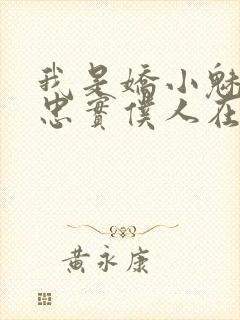 我是嬌小魅
忠實僕人在
黃永康